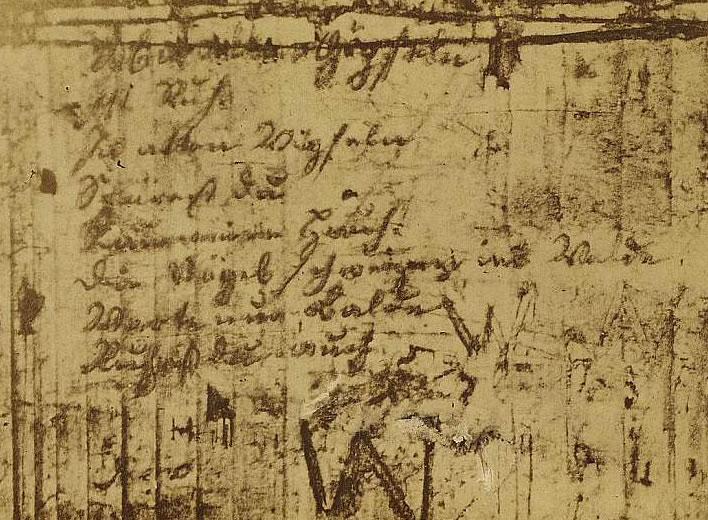 Über allen Gipfeln
ist Ruh
In allen Wipfeln
Spürest du
Kaum einen Hauch.
Die Vögel schweigen im Walde
Warte nur, balde
Ruhest du auch